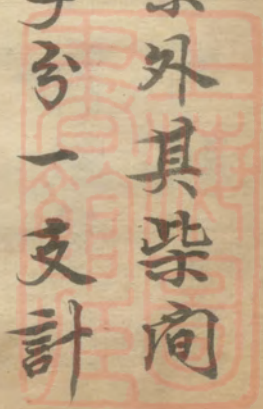 外其柴间
分一支計